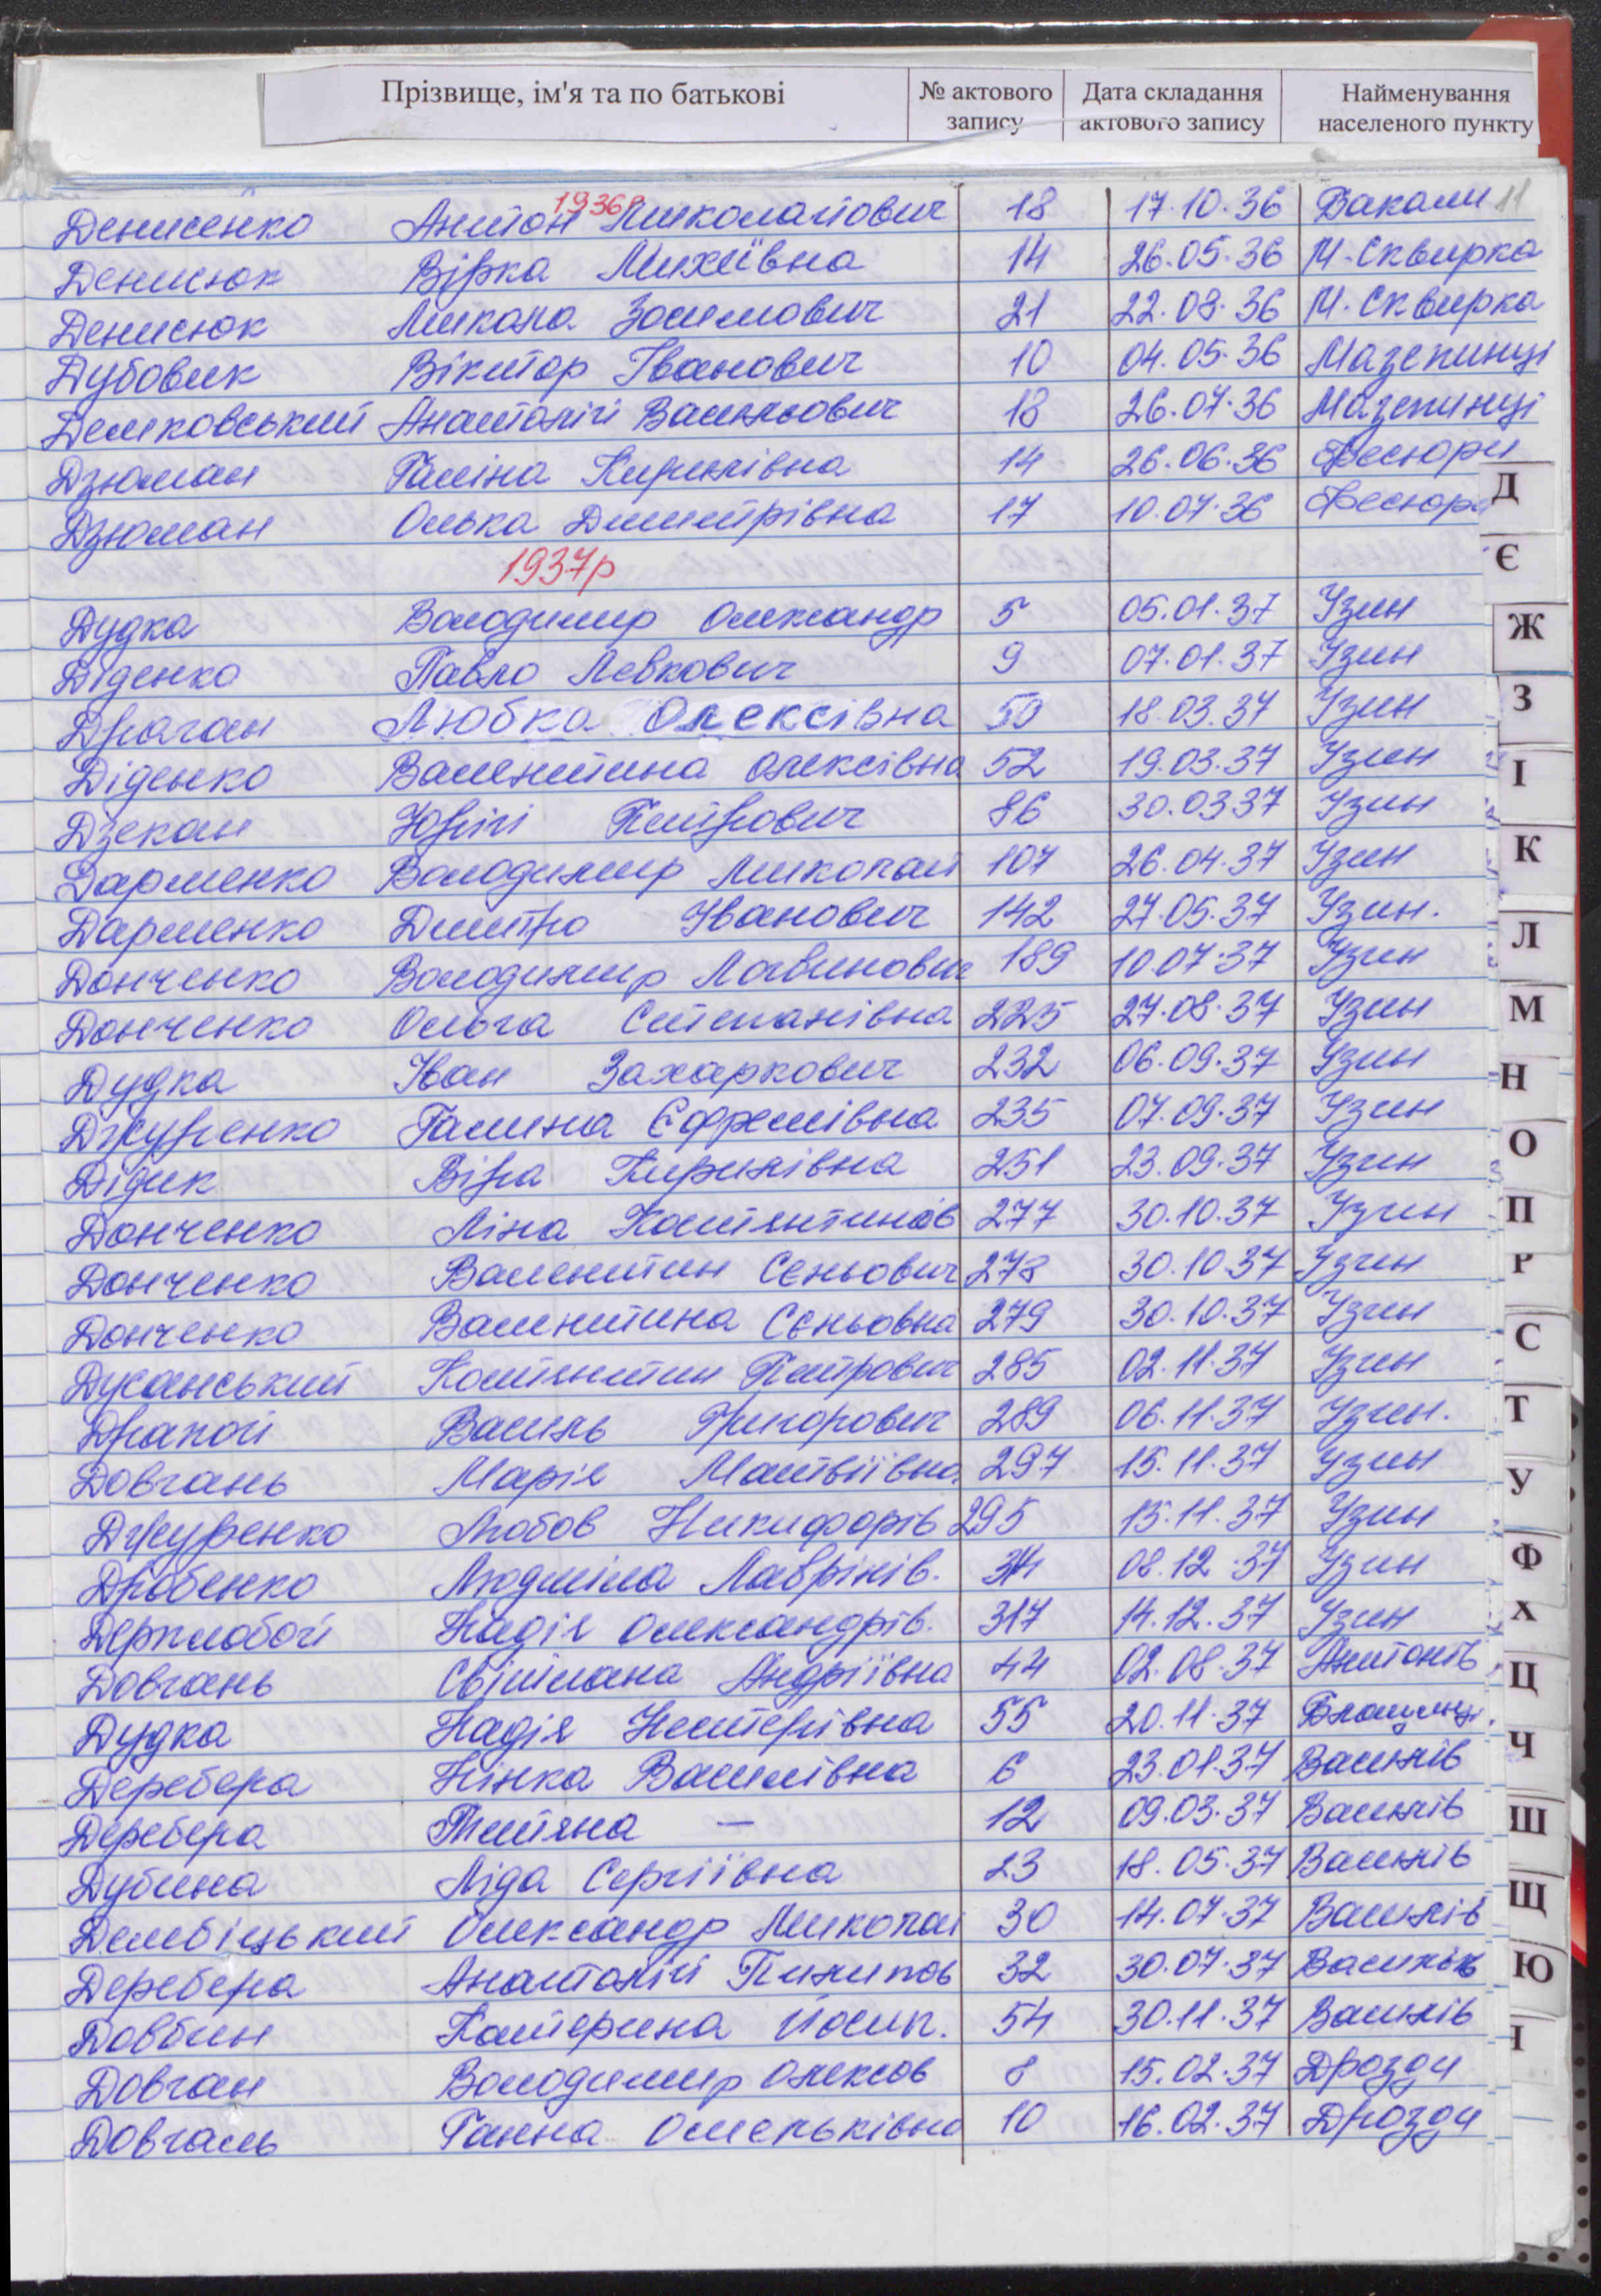 Прізвище, ім'я та по батькові № актового запису Дата складання актового запису Найменування населеного пункту
11
1936р
Денисенко Антон Миколайович 18 17.10.36 Вакали
Денисюк Вірка Михеївна 14 26.05.36 М-Сквирка
Денисюк Микола Зосимович 21 22.08.36 М-Сквирка
Дубовик Віктор Іванович 10 04.05.36 Мазепинці
Демковський Анатолій Васильович 18 26.07.36 Мазепинці
Дзюман Галіна Кирилівна 14 26.06.36 Фесюри
Дзюман Олька Дмитрівна 17 10.07.36 Фесюри
Д
Є
1937р
Дудка Володимир Олександр 5 05.01.37 Узин
Ж
Діденко Павло Левкович 9 07.01.37 Узин
Драган Любка Олексівна 50 18.03.37 Узин
З
Діденко Валентина Олексівна 52 19.03.37 Узин
І
Дзекан Юрій Петрович 86 30.03 37 Узин
Дарменко Володимир Миколай 107 26.04.37 Узин
К
Дарменко Дмитро Іванович 142 27.05.37 Узин.
Л
Донченко Володимир Логвинович 189 10.07.37 Узин
Донченко Ольга Степанівна 225 27.08.37 Узин
М
Дудка Іван Захаркович 232 06.09.37 Узин
Н
Джуренко Галина Єфремівна 235 07.09.37 Узин
О
Дідик Віра Кирилівна 251 23.09.37 Узин
Донченко Ліна Костянтинів 277 30.10.37 Узин
П
Донченко Валентин Сеньович 278 30.10.37 Узин
Р
Донченко Валентина Сеньовна 279 30.10.37 Узин
С
Дусанський Костянтин Петрович 285 02.11.37 Узин
Драпой Василь Григорович 289 06.11.37 Узин.
Т
Довгань Марія Матвіївна 297 15.11.37 Узин
У
Джуренко Любов Никифорів 295 15.11.37 Узин
Дробенко Людміла Лаврінів. 08.12.37 Узин
Ф
Держлобой Надія Олександрів. 317 14.12.37 Узин
Х
Довгань Світлана Андріївна 44 02.08.37 Антонів
Ц
Дудка Надія Нестерівна 55 20.11.37 Блощинці
Ч
Деребера Нінка Василівна 6 23.01.37 Василів
Деребера Тетяна — 12 09.03.37 Василів
Ш
Дубина Ліда Сергіївна 23 18.05.37 Василів
Щ
Дембіцький Олександр Миколай 30 14.07.37 Василів
Деребера Анатолій Пилипов 32 30.07.37 Васильів
Ю
Довбиш Катерина Йосип. 54 30.11.37 Василів
Я
Довган Володимир Олексов 8 15.02.37 Дрозди
Довгань Ганна Омельківна 10 16.02.37 Дрозди